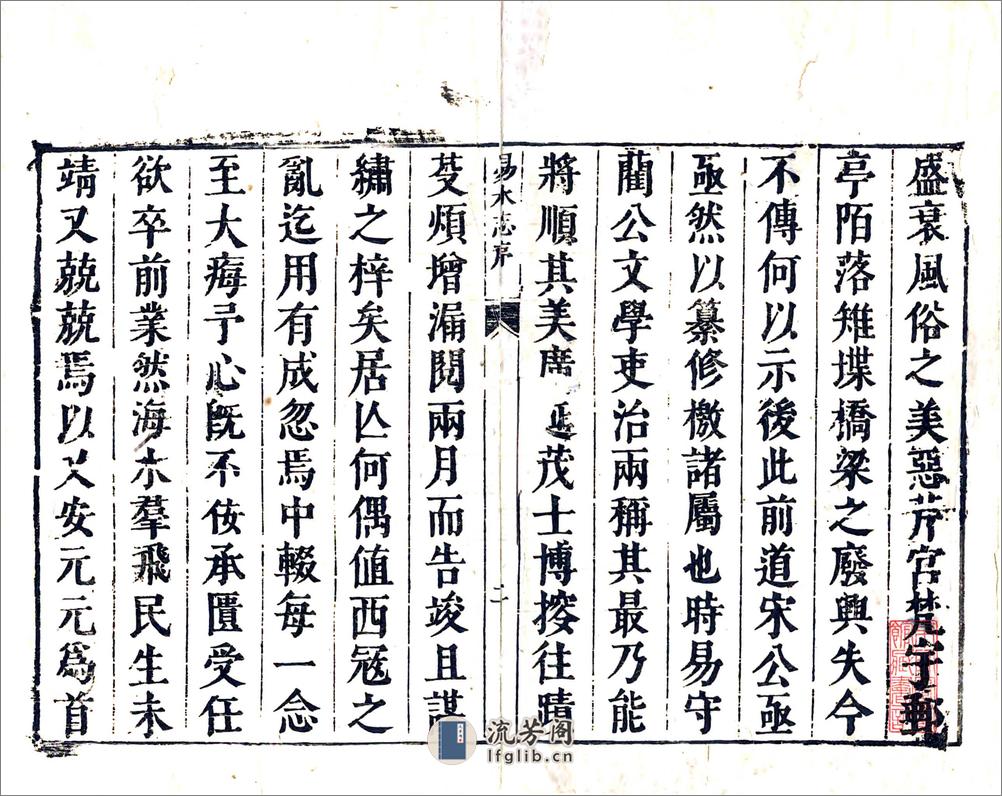 盛衰風俗之美惡芹宮梵宇郵
亭陌落雉堞橋梁之廢興失今
不傳何以示後此前道宋公亟
亟然以纂修檄諸屬也時易守
藺公文學吏治兩稱其最乃能
將順其美席延茂士博搜往蹟
芟煩增漏閱兩月而告竣且謀
繡之梓矣居亾何偶值西寇之
亂迄用有成忽焉中輟每一念
至大痗予心既不佞承匱受任
欲卒前業然海水羣飛民生未
靖又兢兢焉以乂安元元為首
易水志序
二
流芳阁
lfglib.cn